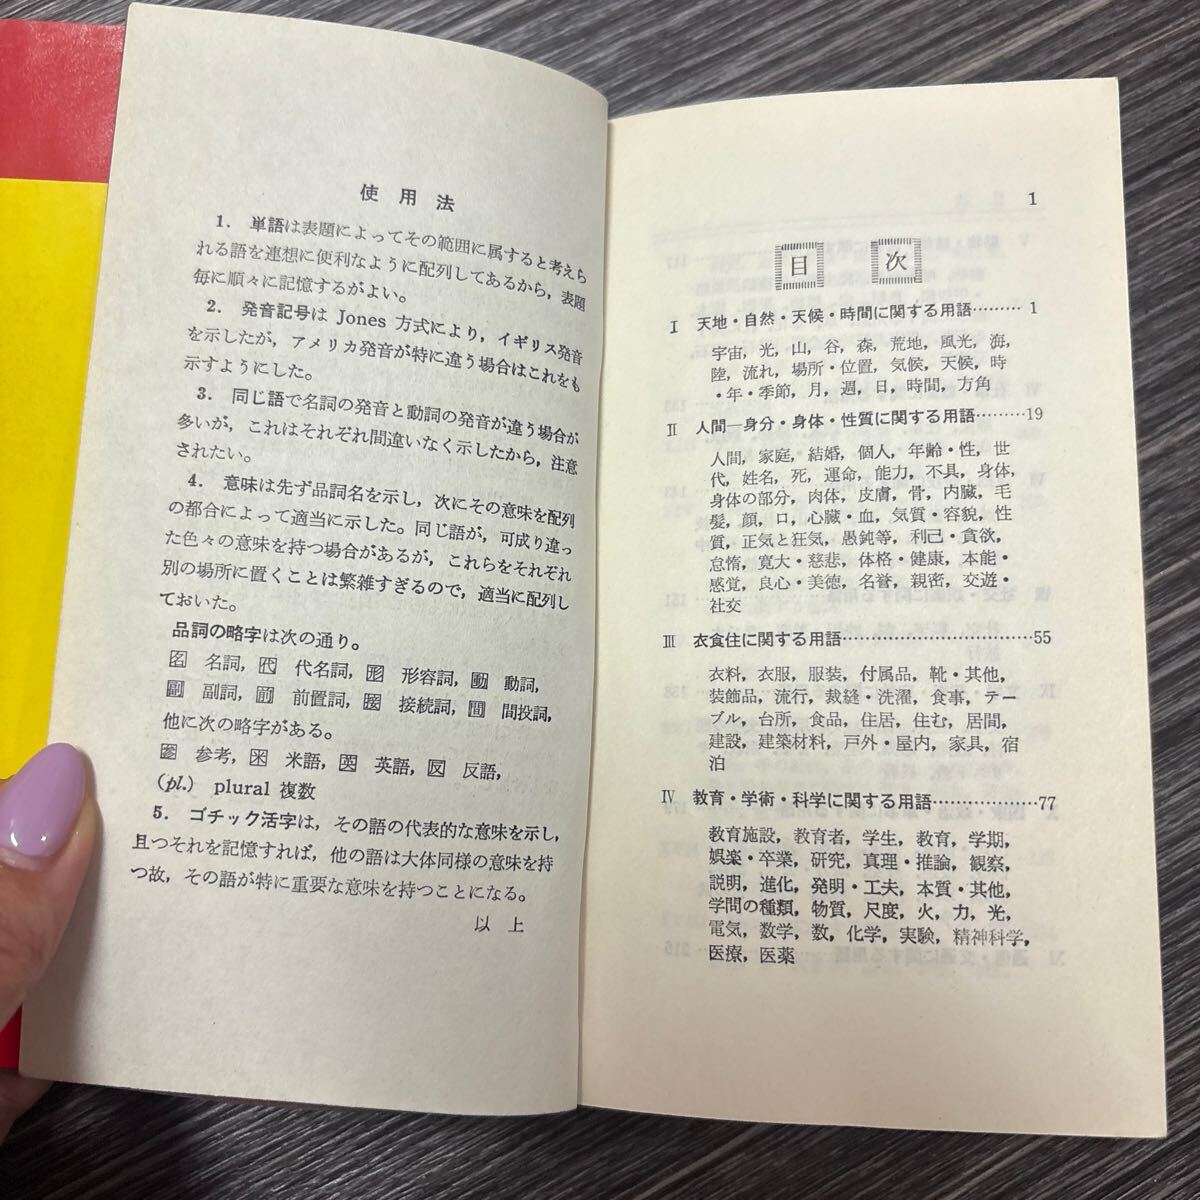 使用法
1. 単語は表題によってその範囲に属すると考えら
れる語を連想に便利なように配列してあるから，表題
毎に順々に記憶するがよい。
2. 発音記号は Jones 方式により，イギリス発音
を示したが，アメリカ発音が特に違う場合はこれをも
示すようにした。
3. 同じ語で名詞の発音と動詞の発音が違う場合が
多いが，これはそれぞれ間違いなく示したから，注意
されたい。
4. 意味は先ず品詞名を示し，次にその意味を配列
の都合によって適当に示した。同じ語が，可成り違っ
た色々の意味を持つ場合があるが，これらをそれぞれ
別の場所に置くことは繁雑すぎるので，適当に配列し
ておいた。
品詞の略字は次の通り。
名 名詞，代 代名詞，形 形容詞，動 動詞，
副 副詞，前 前置詞，接 接続詞，間 間投詞，
他に次の略字がある。
参 参考，米 米語，英 英語，反 反語，
(pl.) plural 複数
5. ゴチック活字は，その語の代表的な意味を示し，
且つそれを記憶すれば，他の語は大体同様の意味を持
つ故，その語が特に重要な意味を持つことになる。
以上
1
目次
Ⅰ 天地・自然・天候・時間に関する用語………1
宇宙，光，山，谷，森，荒地，風光，海，
陸，流れ，場所・位置，気候，天候，時
・年・季節，月，週，日，時間，方角
Ⅱ 人間―身分・身体・性質に関する用語………19
人間，家庭，結婚，個人，年齢・性，世
代，姓名，死，運命，能力，不具，身体，
身体の部分，肉体，皮膚，骨，内臓，毛
髪，顔，口，心臓・血，気質・容貌，性
質，正気と狂気，愚鈍等，利己・貪欲，
怠惰，寛大・慈悲，体格・健康，本能・
感覚，良心・美徳，名誉，親密，交遊・
社交
Ⅲ 衣食住に関する用語……………………………55
衣料，衣服，服装，付属品，靴・其他，
装飾品，流行，裁縫・洗濯，食事，テー
ブル，台所，食品，住居，住む，居間，
建設，建築材料，戸外・屋内，家具，宿
泊
Ⅳ 教育・学術・科学に関する用語………………77
教育施設，教育者，学生，教育，学期，
娯楽・卒業，研究，真理・推論，観察，
説明，進化，発明・工夫，本質・其他，
学問の種類，物質，尺度，火，力，光，
電気，数学，数，化学，実験，精神科学，
医療，医薬